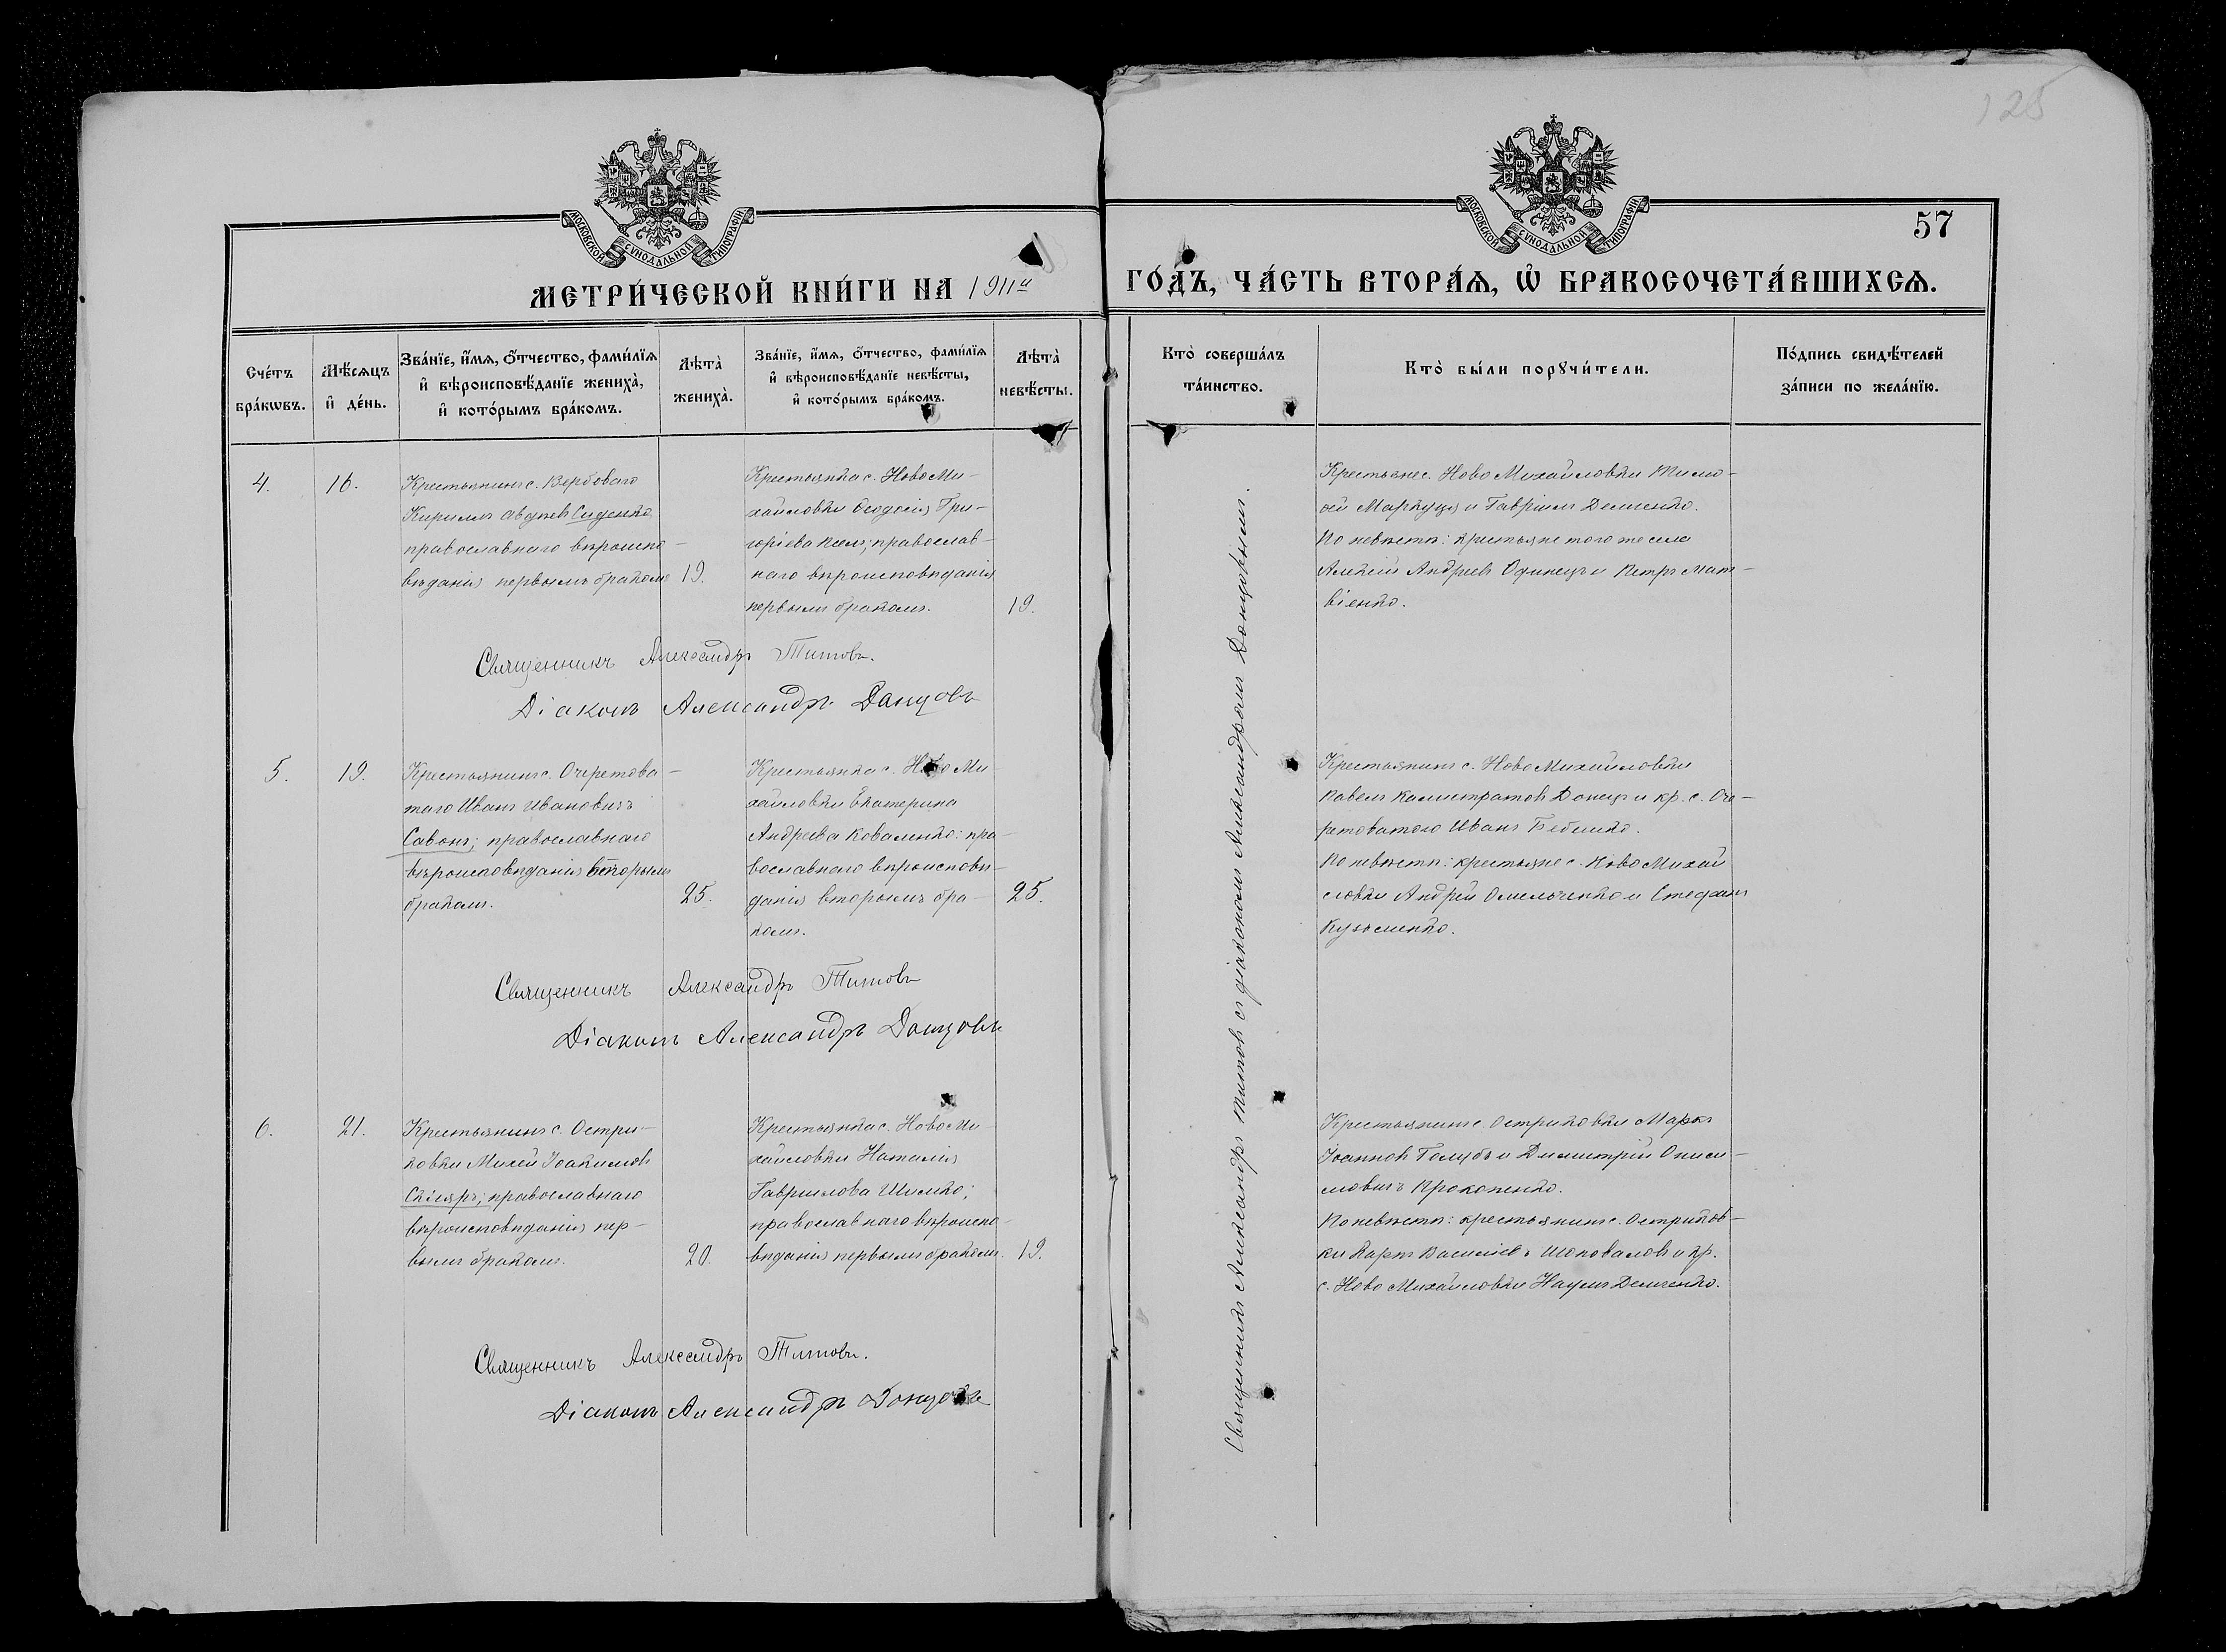 125
57
МОСКОВСКОЙ СѴНОДАЛЬНОЙ ТИПОГРАФІИ
МОСКОВСКОЙ СѴНОДАЛЬНОЙ ТИПОГРАФІИ
МЕТРИ́ЧЕСКОЙ КНИ́ГИ НА 1911й ГО́ДЪ, ЧА́СТЬ ВТОРА́Ѧ, Ѽ БРАКОСОЧЕТА́ВШИХСѦ.
Сче́тъ бра́кѡвъ.
Мѣ́сѧцъ и҆ де́нь.
Зва́нїе, и҆́мѧ, ѻ҆́тчество, фами́лїѧ
и҆ вѣроисповѣ́данїе жениха̀,
и҆ кото́рымъ бра́комъ.
Лѣта̀ жениха̀.
Зва́нїе, и҆́мѧ, ѻ҆́тчество, фами́лїѧ
и҆ вѣроисповѣ́данїе невѣ́сты,
и҆ кото́рымъ бра́комъ.
Лѣта̀ невѣ́сты.
Кто̀ соверша́лъ та́инство.
Кто̀ бы́ли порꙋчи́тели.
По́дпись свидѣ́телей за́писи по жела́нїю.
4.
16.
Крестьянинъ с. Вербоваго
Кириллъ Авдѣевъ Сиденко
православнаго вѣроиспо-
вѣданія первымъ бракомъ
19.
Крестьянка с. НовоМи-
хайловки Ѳеодосія Гри-
горіева; православ-
наго вѣроисповѣданія
первымъ бракомъ.
19.
Крестьяне с. Ново Михайловки Тимо-
ѳей и Гавріилъ Демченко.
По невѣстѣ: крестьяне того же села
Алексій Андреевъ Одинецъ и Петръ Мат-
віенко.
Священникъ Александръ Титовъ.
Діаконъ Александръ Донцовъ
5.
19.
Крестьянинъ с. Очеретова-
таго Иванъ Ивановичъ
Савонъ; православнаго
вѣроисповѣданія вторымъ
бракомъ.
25.
Крестьянка с. Ново Ми-
хайловки Екатерина
Андреева Коваленко: пра-
вославнаго вѣроисповѣ-
данія вторымъ бра-
комъ.
25.
Крестьянинъ с. Ново Михайловки
Павелъ Калистратовъ Донецъ и кр. с. Оче-
ретоватого Иванъ
По невѣстѣ: крестьяне с. Ново Михай
ловки Андрей Омельченко и Стефанъ
Кузьменко.
Священникъ Александръ Титовъ
Діаконъ Александръ Донцовъ
6.
21.
Крестьянинъ с. Остри-
ковки Михей Іоакимовъ
Скляръ; православнаго
вѣроисповѣданія пер-
вымъ бракомъ.
20.
Крестьянка с. Ново Ми-
хайловки Наталія
Гавріилова Шимко;
православнаго вѣроиспо-
вѣданія первымъ бракомъ.
19.
Крестьянинъ с. Остриковки Маркъ
Іоанновъ Голубъ и Димитрій Ониси-
мовичъ Прокопенко.
По невѣстѣ: крестьянинъ с. Остриков-
ки Карпъ Василіевъ Шаповаловъ и кр.
с. Ново Михайловки Наумъ Демченко.
Священникъ Александръ Титовъ.
Діаконъ Александръ Донцовъ
Священникъ Александръ Титовъ съ діакономъ Александромъ Донцовымъ.